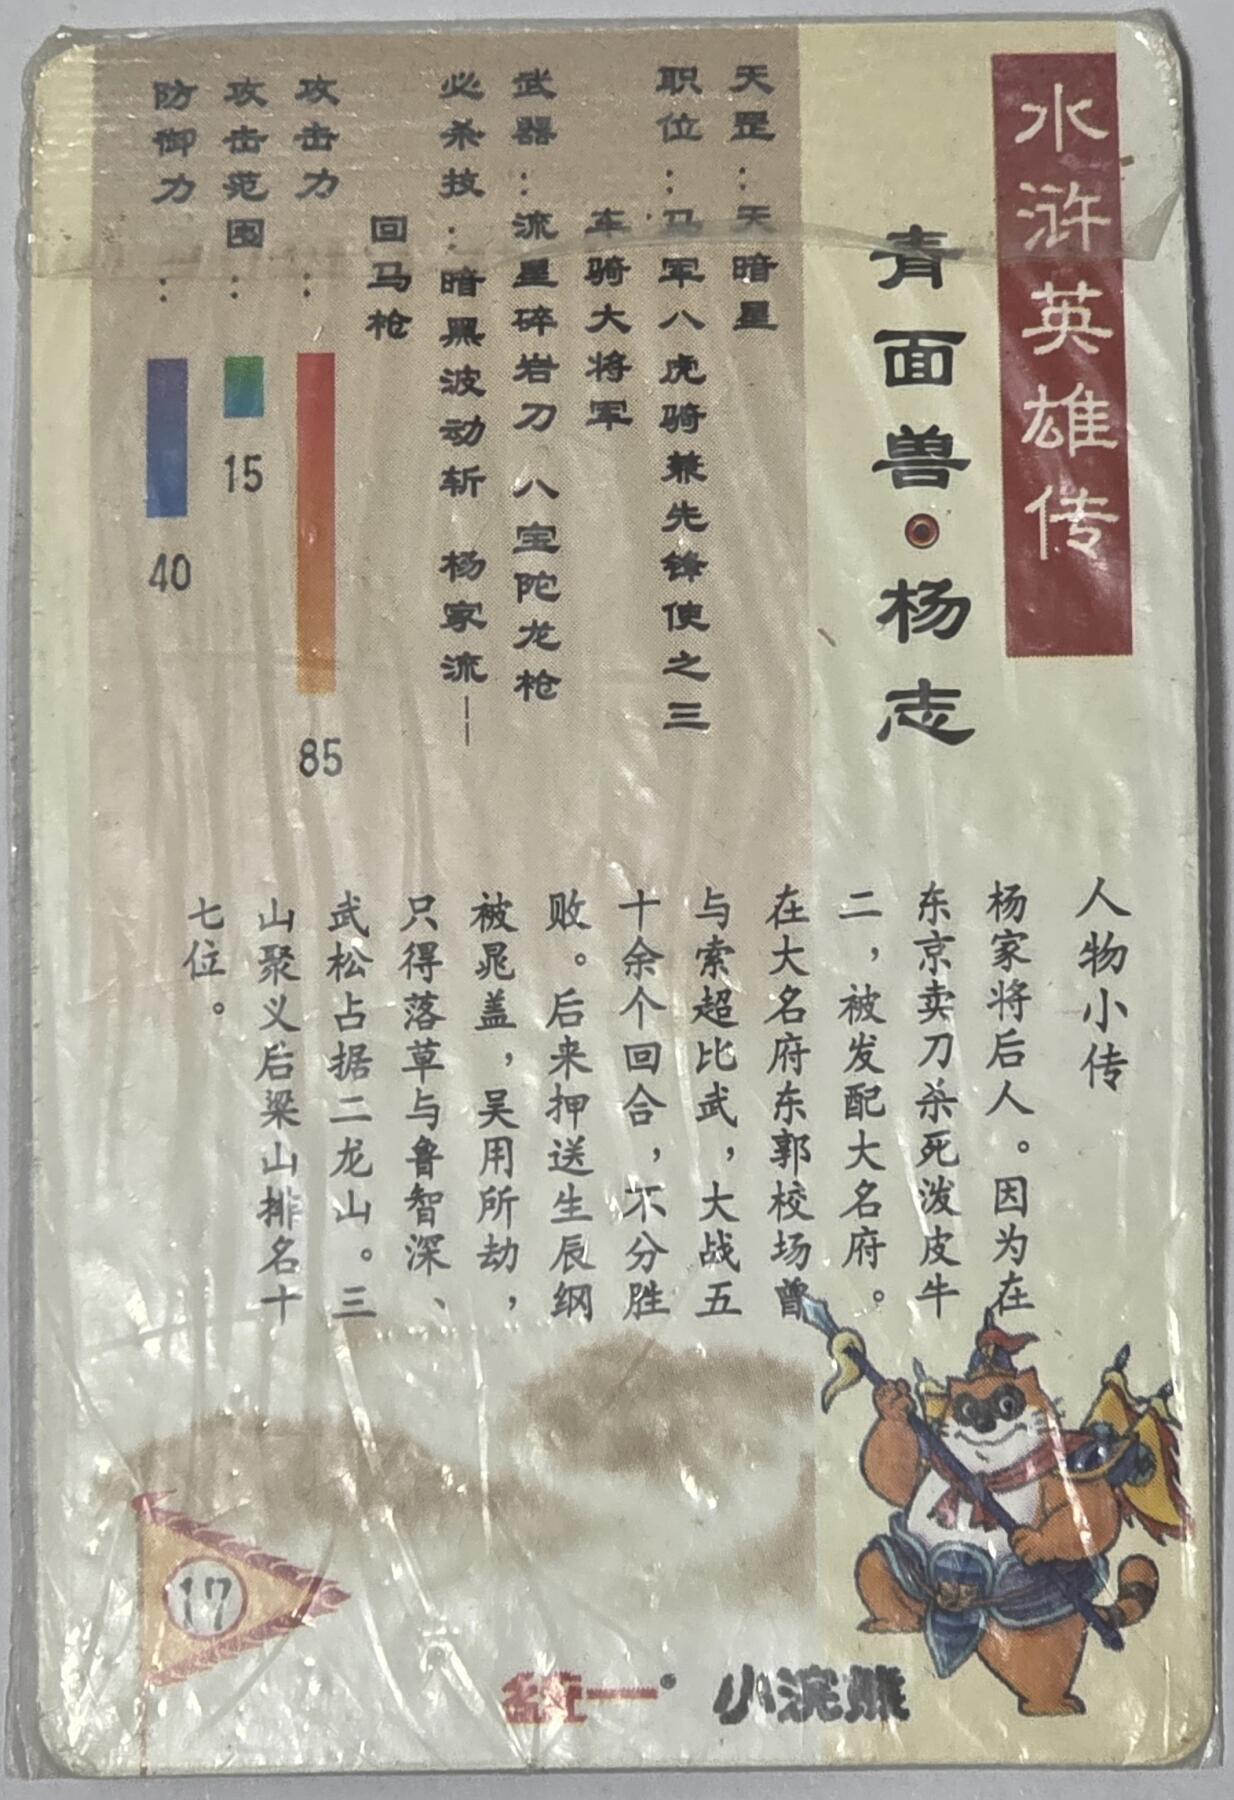 水浒英雄传
青面兽·杨志
天罡：天暗星
职位：马军八虎骑兼先锋使之三
车骑大将军
武器：流星碎岩刀 八宝陀龙枪
必杀技：暗黑波动斩 杨家流—
回马枪
攻击力：
85
攻击范围：
15
防御力：
40
人物小传
杨家将后人。因为在
东京卖刀杀死泼皮牛
二，被发配大名府。
在大名府东郭校场曾
与索超比武，大战五
十余个回合，不分胜
败。后来押送生辰纲
被晁盖，吴用所劫，
只得落草与鲁智深、
武松占据二龙山。三
山聚义后梁山排名十
七位。
17
统一® 小浣熊